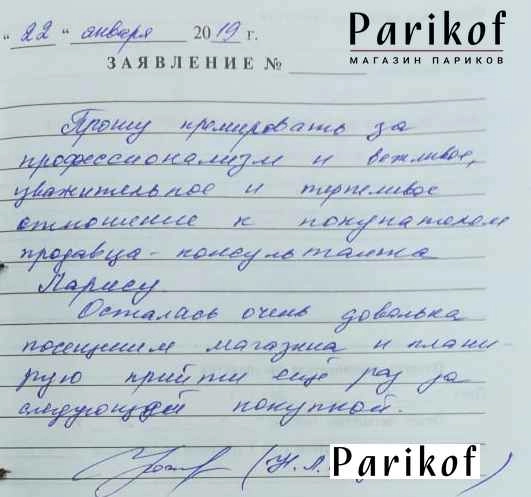 Parikof
МАГАЗИН ПАРИКОВ
"22" января 2019 г.
ЗАЯВЛЕНИЕ №
Прошу премировать за
профессионализм и вежливое,
уважительное и терпеливое
отношение к покупателем
продавца-консультанта
Ларису.
Осталась очень довольна
посещением магазина и плани
рую прийти ещё раз за
следующей покупкой.
(Н. Л.
Parikof